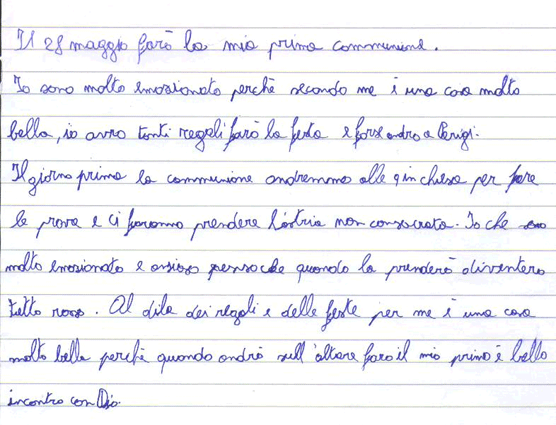 Il 28 maggio farò la mia prima communione.
Io sono molto emozionato perchè secondo me è una cosa molto
bella, io avro tanti regali farò la festa e forse andro a Parigi.
Il giorno prima la communione andremmo alle 9 in chiesa per fare
le prove e ci faranno prendere l'ostria non consacrata. Io che
molto emozionato e ansioso penso che quando la prenderò diventerò
tutto rosso. Al dila dei regali e delle feste per me è una cosa
molto bella perchè quando andrò sull'altare farò il mio primo è bello
incontro con Dio.